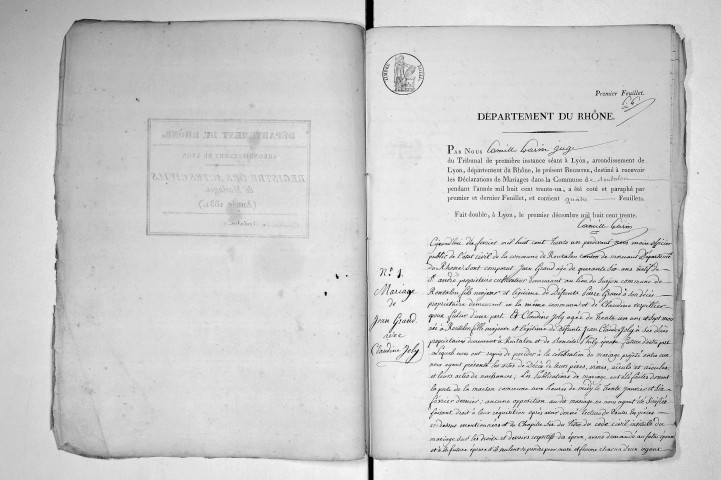 Premier Feuillet.
DÉPARTEMENT DU RHÔNE.
PAR NOUS Camille juge
du Tribunal de première instance séant à Lyon, arrondissement de
Lyon, département du Rhône, le présent REGISTRE, destiné à recevoir
les Déclarations de Mariages dans la Commune de Rontalon
pendant l'année mil huit cent trente-un, a été coté et paraphé par
premier et dernier Feuillet, et contient quatre Feuillets.
Fait double, à Lyon, le premier décembre mil huit cent trente.
Camille
N.º 1.
Mariage
de
Jean Grand
avec
Claudine Joly
février mil huit cent trente un pardevant nous maire officier
public de l'état civil de la commune de Rontalon canton de mornant Département
du Rhône sont comparus Jean Grand agé de quarante six ans natif de
St andré propriétaire cultivateur demeurant au lieu de commune de
Rontalon fils majeur et légitime de défunts Pierre Grand à son décès
propriétaire demeurant en la même commune et de Claudine
pour futur d'une part Et Claudine Joly agée de trente un ans et sept mois
née à Rontalon fille majeure et légitime de défunts Jean Claude Joly à son décès
propriétaire demeurant à Rontalon et de future d'autre part
Lesquels nous ont requis de procéder à la célébration du mariage projeté entre eux
nous ayant présenté les actes de Décès de leurs pères, mères, aïeuls et aïeules,
et leurs actes de naissances; Les publications de mariage ont été faites devant
la porte de la maison commune aux heures de midy le trente janvier et six
février dernier; aucune opposition au dit mariage ne nous ayant été signifiée
faisant droit à leur réquisition après avoir donné lecture de toutes les pièces
ci dessus mentionnées et du Chapitre six du titre du code civil intitulé du
mariage sur les droits et devoirs respectifs des époux, avons demandé au futur époux
et à la future épouse s'ils veulent se prendre pour mari et femme chacun d'eux ayant